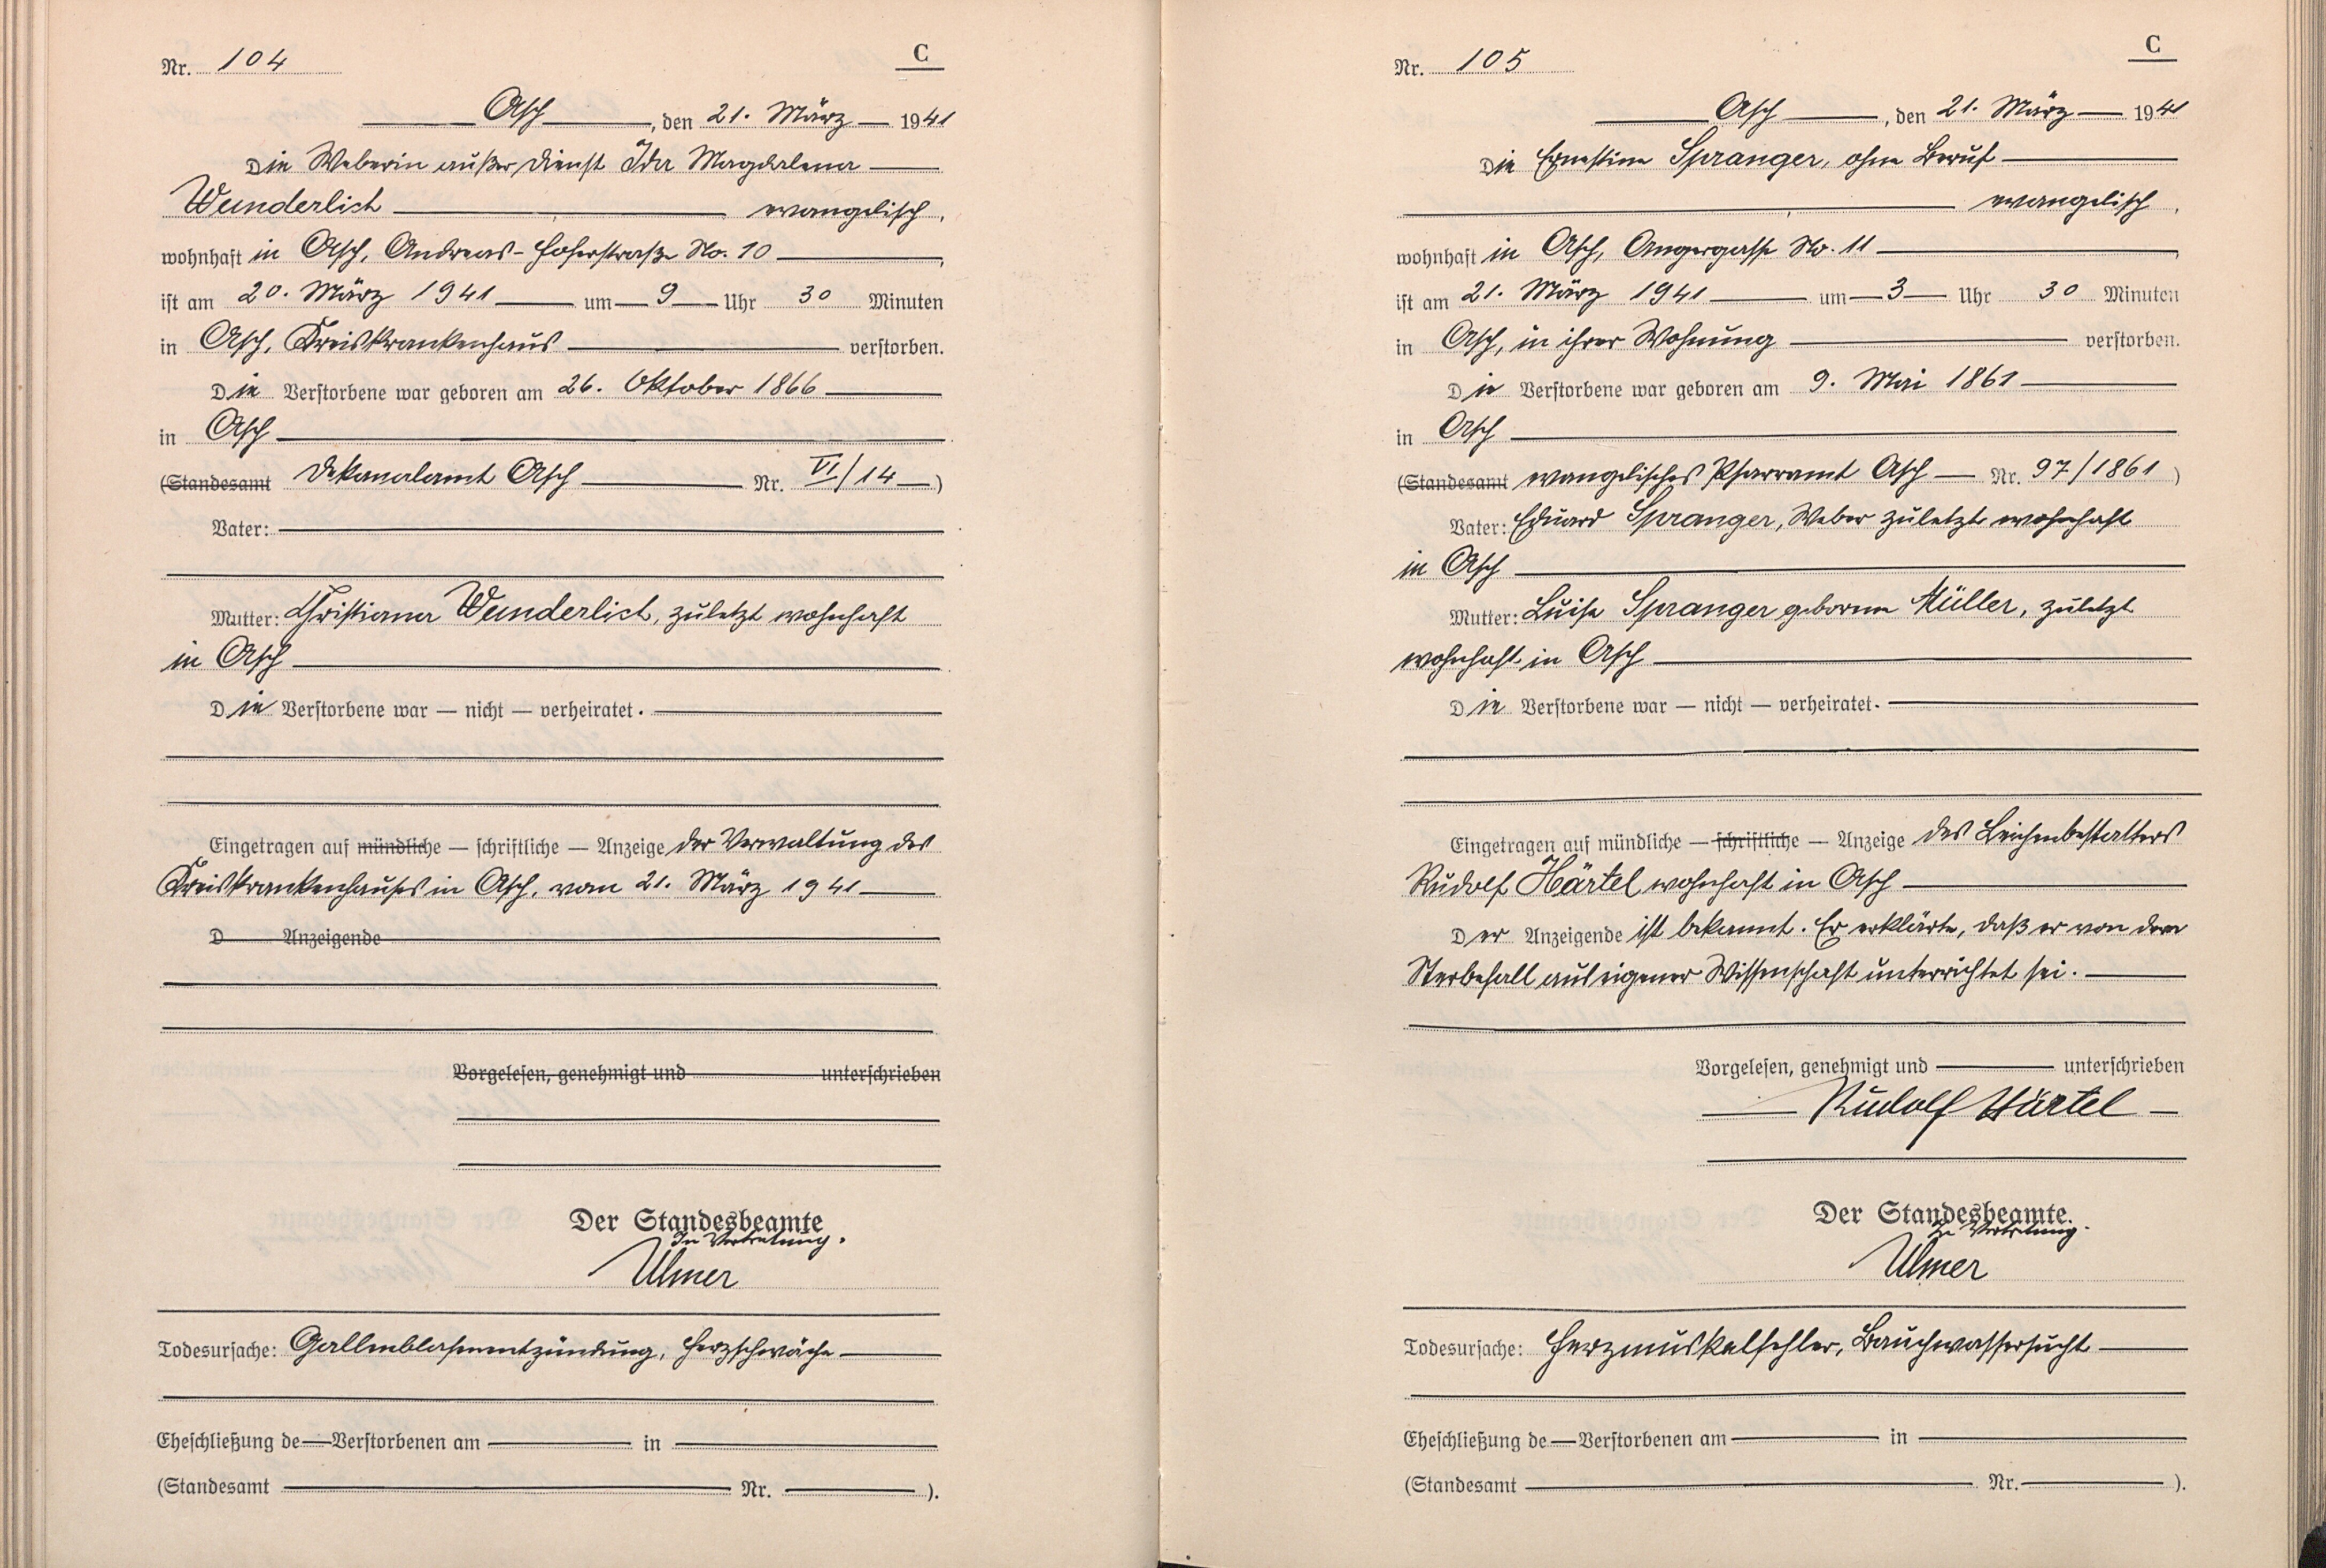 Nr. 104
C
Asch, den 21. März 1941
Die Weberin außer Dienst Ida Magdalena
Wunderlich evangelisch,
wohnhaft in Asch, Andreas-Hoferstraße No. 10,
ist am 20. März 1941 um 9 Uhr 30 Minuten
in Asch, Kreiskrankenhaus verstorben.
Die Verstorbene war geboren am 26. Oktober 1866
in Asch
(Standesamt Dekanalamt Asch Nr. VI/14)
Vater:
Mutter: Christiana Wunderlich, zuletzt wohnhaft
in Asch
Die Verstorbene war — nicht — verheiratet.
Eingetragen auf mündliche — schriftliche — Anzeige der Verwaltung des
Kreiskrankenhauses in Asch, vom 21. März 1941
D Anzeigende
Vorgelesen, genehmigt und unterschrieben
Der Standesbeamte
In Vertretung.
Ulmer
Todesursache: Gallenblasenentzündung, Herzschwäche
Eheschließung de Verstorbenen am in
(Standesamt Nr. ).
Nr. 105
C
Asch, den 21. März 1941
Die Ernestine Spranger, ohne Beruf
evangelisch,
wohnhaft in Asch, Angergasse No. 11,
ist am 21. März 1941 um 3 Uhr 30 Minuten
in Asch, in ihrer Wohnung verstorben.
Die Verstorbene war geboren am 9. Mai 1861
in Asch
(Standesamt evangelisches Pfarramt Asch Nr. 97/1861)
Vater: Eduard Spranger, Weber zuletzt wohnhaft
in Asch
Mutter: Luise Spranger geborene Müller, zuletzt
wohnhaft in Asch
Die Verstorbene war — nicht — verheiratet.
Eingetragen auf mündliche — schriftliche — Anzeige des Leichenbestatters
Rudolf Härtel wohnhaft in Asch
Der Anzeigende ist bekannt. Er erklärte, daß er von dem
Sterbefall aus eigener Wissenschaft unterrichtet sei.
Vorgelesen, genehmigt und unterschrieben
Rudolf Härtel
Der Standesbeamte.
In Vertretung.
Ulmer
Todesursache: Herzmuskelfehler, Bauchwassersucht
Eheschließung de Verstorbenen am in
(Standesamt Nr. ).